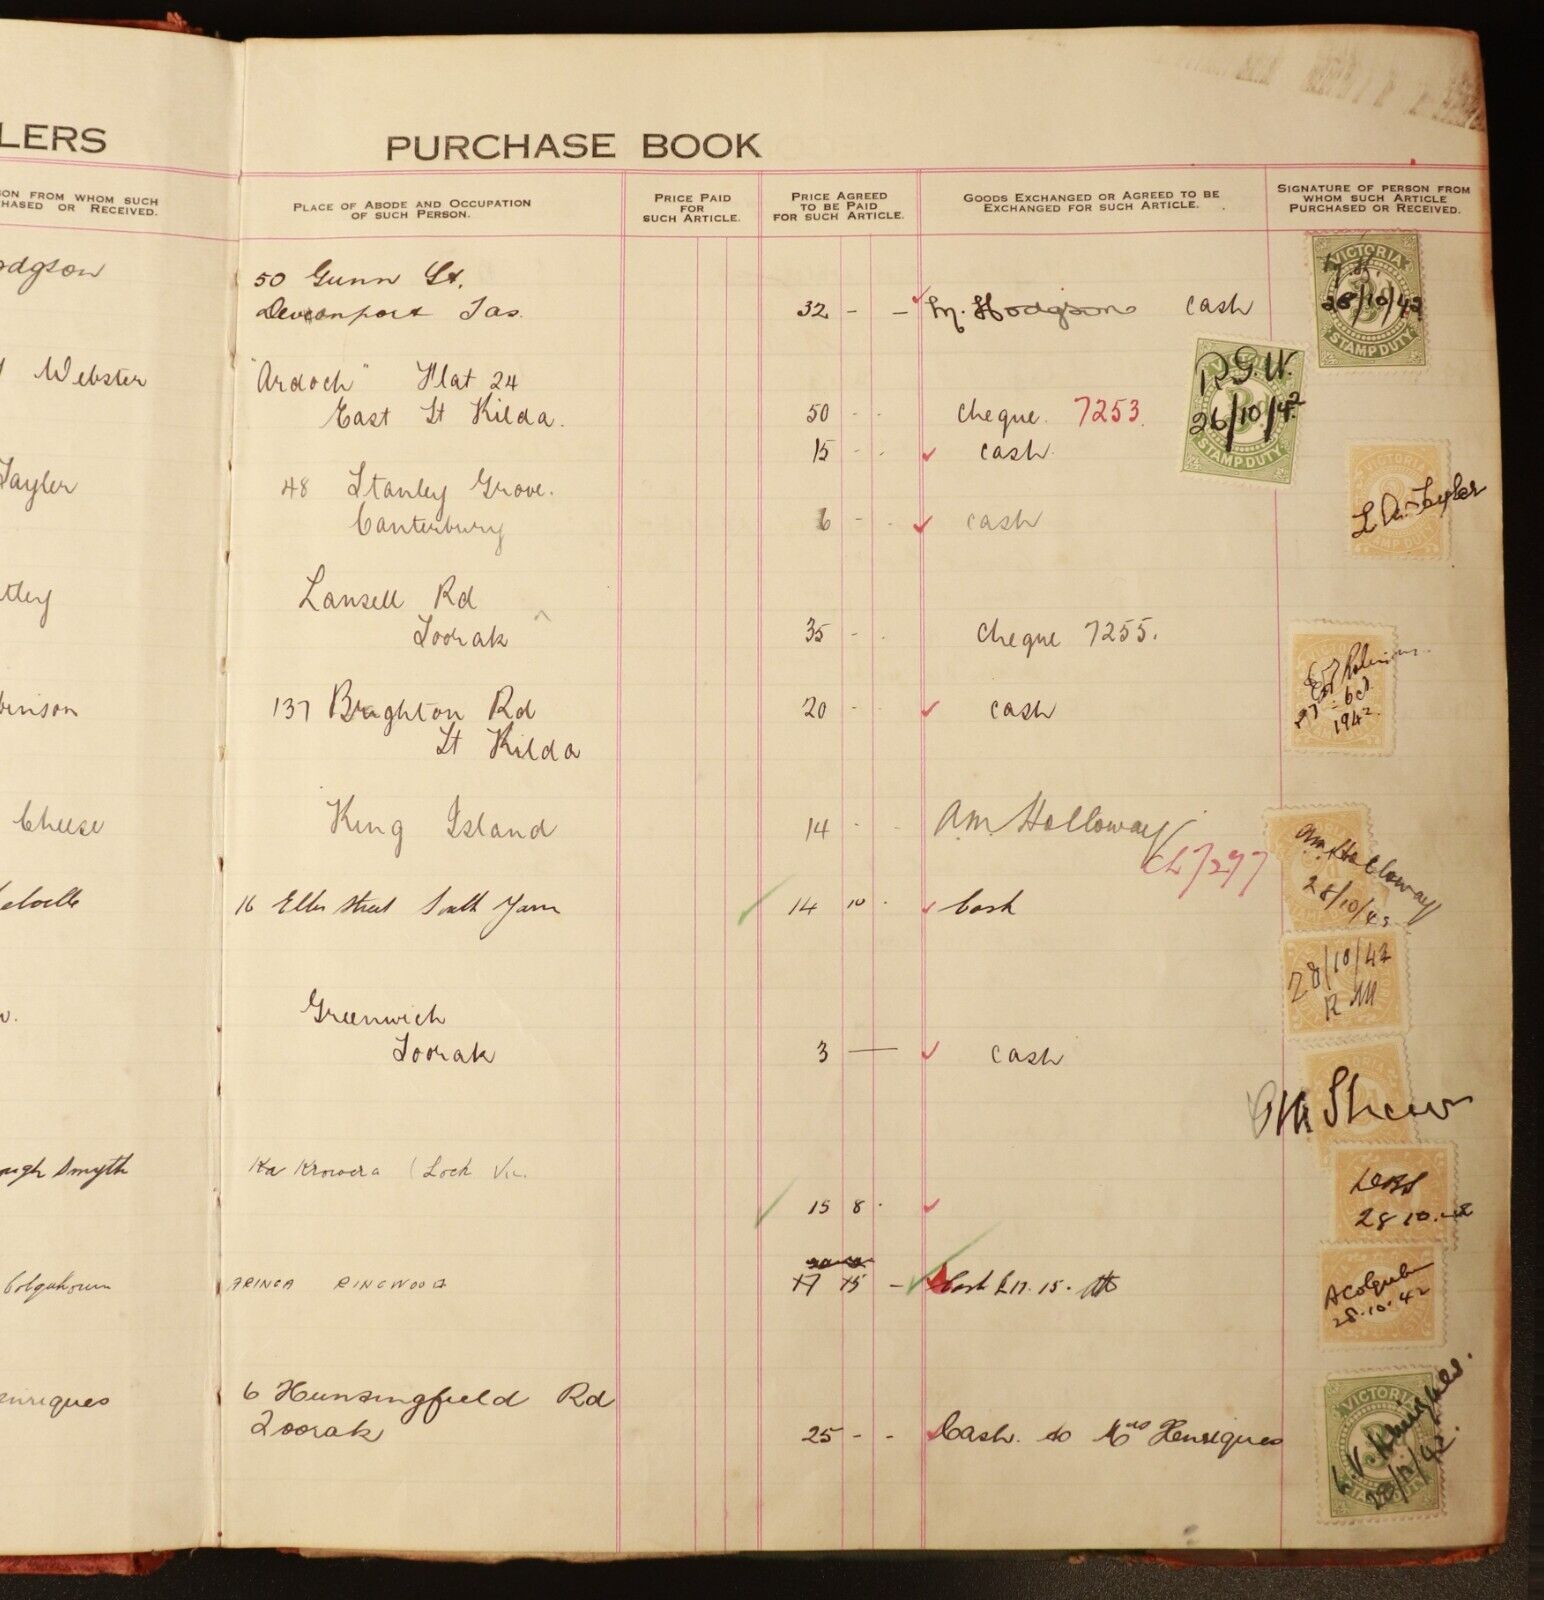 LERS
PURCHASE BOOK
ON FROM WHOM SUCH
HASED OR RECEIVED.
PLACE OF ABODE AND OCCUPATION
OF SUCH PERSON.
PRICE PAID
FOR
SUCH ARTICLE.
PRICE AGREED
TO BE PAID
FOR SUCH ARTICLE.
GOODS EXCHANGED OR AGREED TO BE
EXCHANGED FOR SUCH ARTICLE.
SIGNATURE OF PERSON FROM
WHOM SUCH ARTICLE
PURCHASED OR RECEIVED.
odgson
50 Gunn St.
Devonport Tas. 32 - - M. Hodgson cash
VICTORIA
3
28/10/42
STAMP DUTY
Webster
"Ardoch" Flat 24
East St Kilda. 50 - - cheque. 7253.
15 - - cash.
R.G.W.
26/10/42
STAMP DUTY
Tayler
48 Stanley Grove.
Canterbury 6 - - cash
VICTORIA
Tayler
STAMP DUTY
tley
Lansell Rd
Toorak 35 - - cheque 7255.
binson
137 Brighton Rd 20 - - cash
St Kilda
27
1942
Cheese
King Island 14 - - A.M. Holloway
Ch 7297
A.M. Holloway
28/10/42
16 Ellis Street South Yarra 14 10 - Cash
28/10/42
R M
w.
Greenwich
Toorak 3 — cash
Shaw
ough Smyth
Ka Krowera (Loch Vic.
15 8 -
28 10 42
Colquhoun
ARINGA RINGWOOD 17 15 - Cash £17.15.
A Colquhoun
28.10.42
enriques
6 Hunsingfield Rd
Toorak 25 - - Cash. to Mrs Henriques
VICTORIA
3
28/10/42